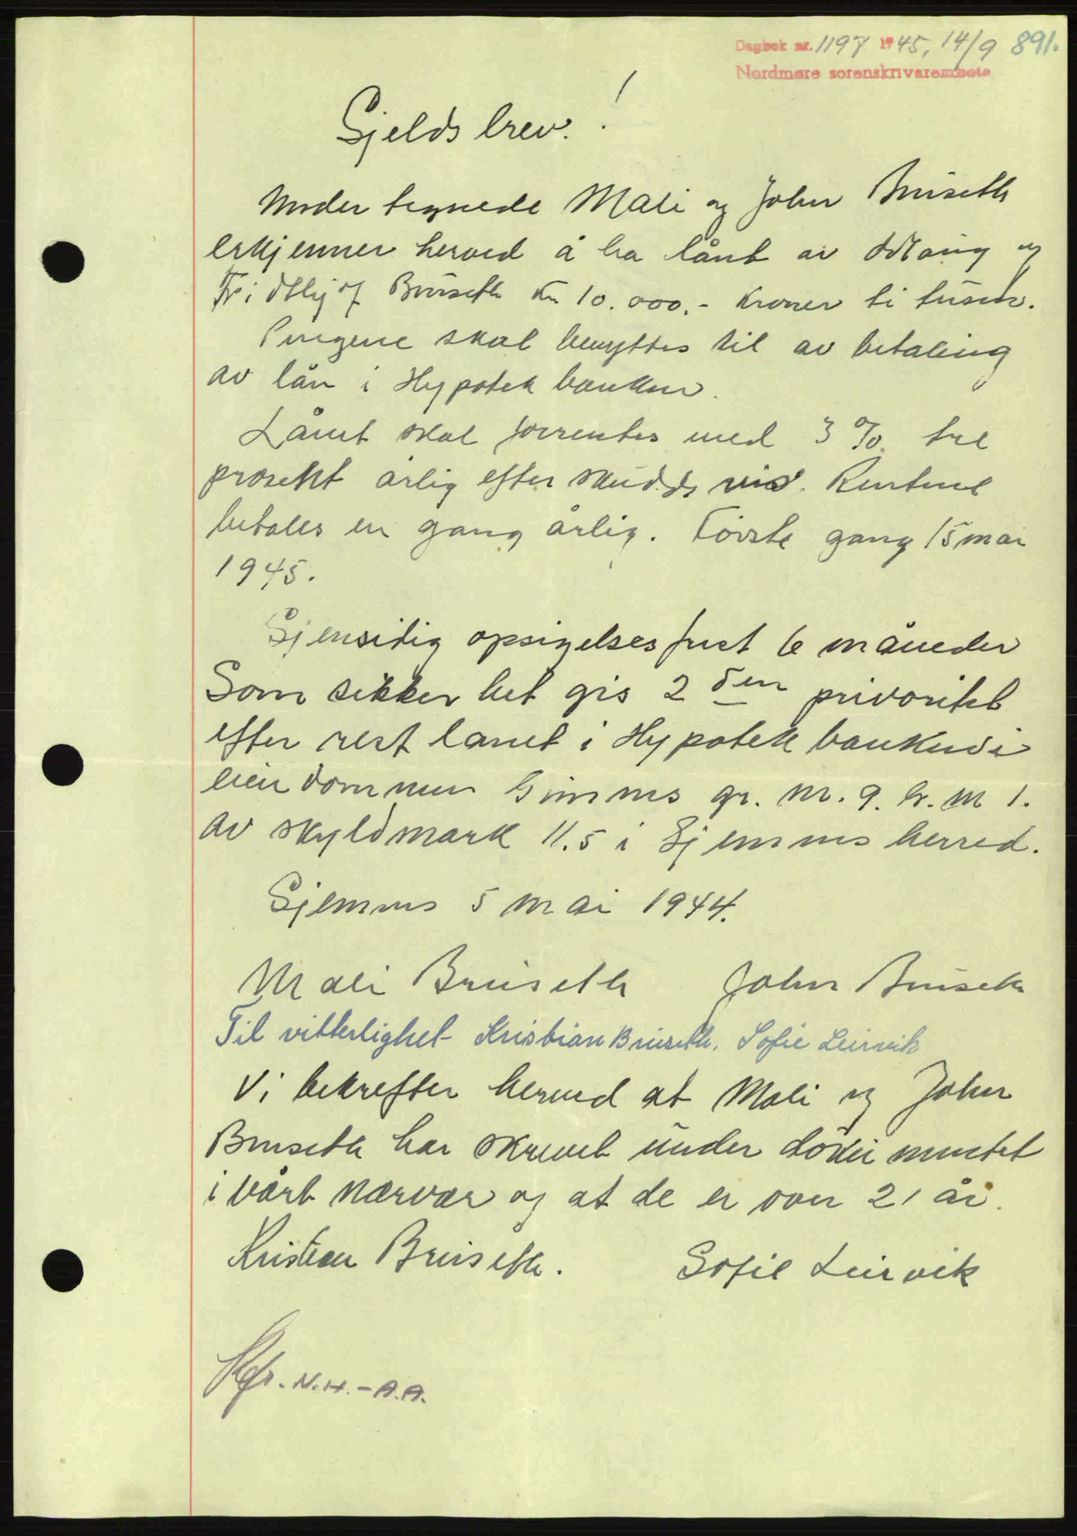 Dagbok nr. 1197 1945, 14/9 891.
Nordmøre sorenskrivarembete
Gjeldsbrev!
Undertegnede Mali og John Bruseth
erkjenner herved å ha lånt av og
Fridthjof Bruseth kr 10.000.- kroner ti tusen.
Pengene skal benyttes til av betaling
av lån i Hypotek banken.
Lånet skal forrentes med 3 % tre
prosekt årlig efter skuddsvis. Rentene
betales en gang årlig. Første gang 15 mai
1945.
Gjensidig opsigelsesfrist 6 måneder
Som sikkerhet gis 2 den privoritet
efter rest lånet i Hypotek banken i
eiendommen Gimnes gr. nr. 9. br. nr 1.
av skyldmark 11.5 i Gjemnes herred.
Gjemnes 5 mai 1944.
Mali Bruseth John Bruseth
Til vitterlighet Kristian Bruseth. Sofie Leirvik
Vi bekrefter herved at Mali og John
Bruseth har skrevet under dokumentet
i vårt nærvær og at de er over 21 år.
Kristian Bruseth. Sofie Leirvik
N.H. - A.A.